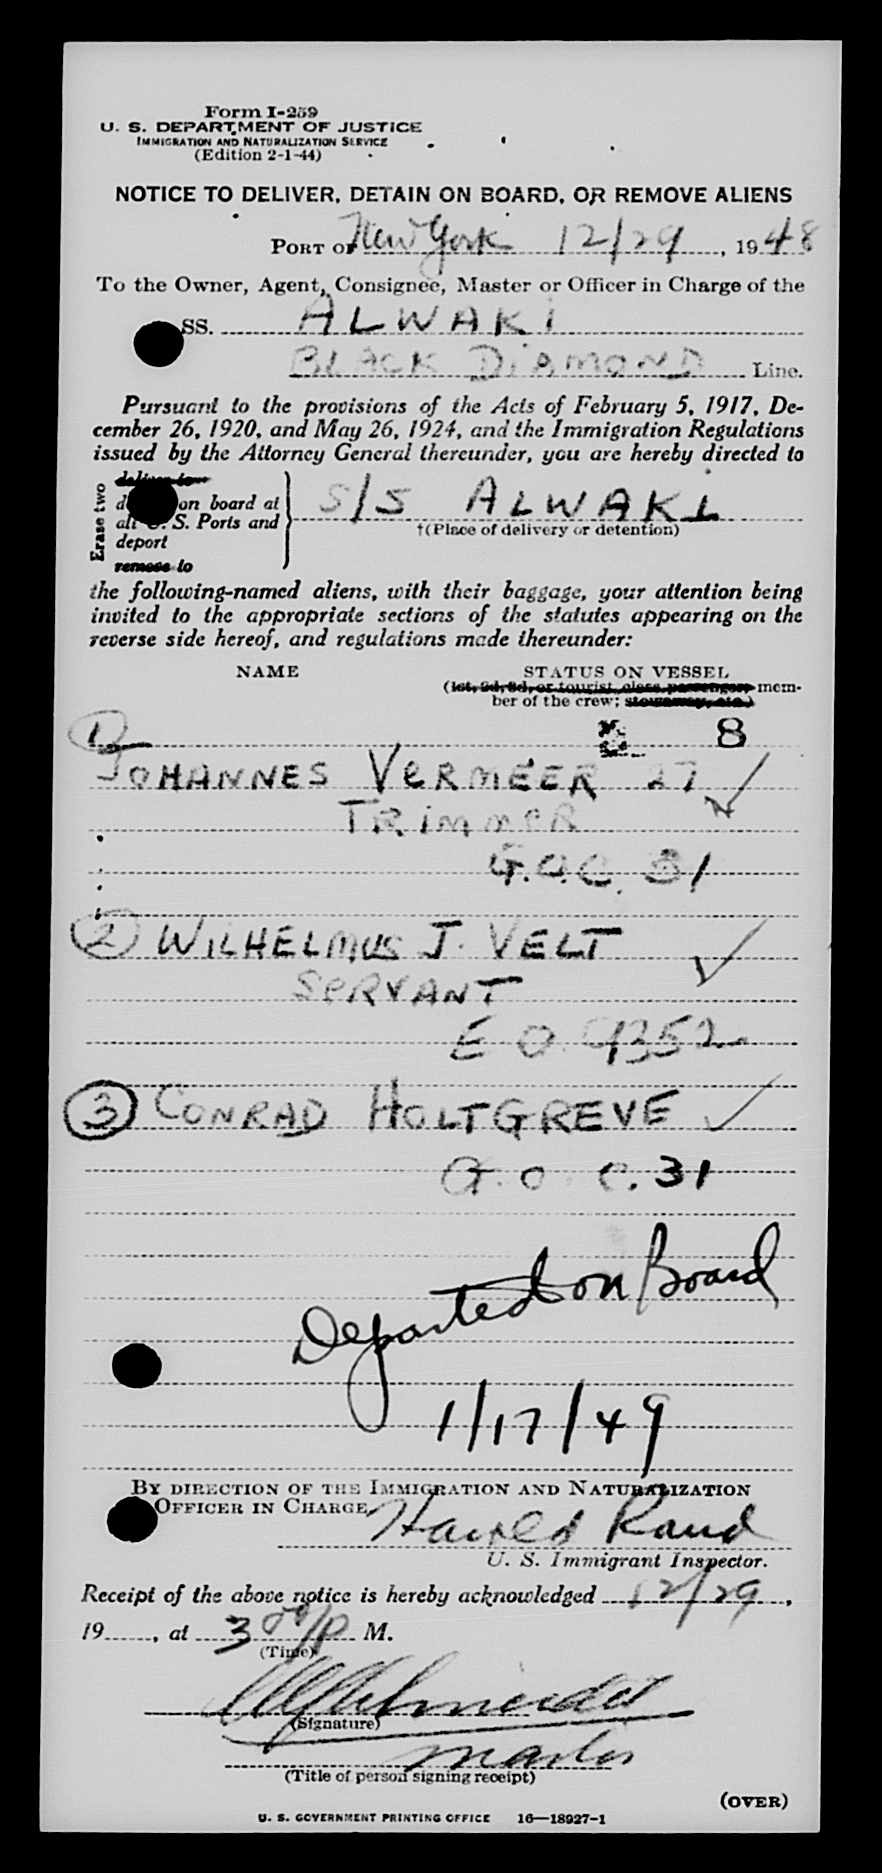 Form I-259
U. S. DEPARTMENT OF JUSTICE
IMMIGRATION AND NATURALIZATION SERVICE
(Edition 2-1-44)
NOTICE TO DELIVER, DETAIN ON BOARD, OR REMOVE ALIENS
PORT OF New York 12/29, 1948
To the Owner, Agent, Consignee, Master or Officer in Charge of the
SS. ALWAKI
BLACK DIAMOND Line.
Pursuant to the provisions of the Acts of February 5, 1917, De-
cember 26, 1920, and May 26, 1924, and the Immigration Regulations
issued by the Attorney General thereunder, you are hereby directed to
Erase two
deliver to
on board at
all U. S. Ports and
deport
remove to
S/S ALWAKI
†(Place of delivery or detention)
the following-named aliens, with their baggage, your attention being
invited to the appropriate sections of the statutes appearing on the
reverse side hereof, and regulations made thereunder:
NAME STATUS ON VESSEL
(1st, 2d, 3d, or tourist class passenger, mem-
ber of the crew; stowaway, etc.)
1) 8
JOHANNES VERMEER 27
TRIMMER
G.O.C. 31
2) WILHELMUS J. VELT
SERVANT
E O. 9352
3) CONRAD HOLTGREVE
G. O. C. 31
Departed on Board
1/17/49
BY DIRECTION OF THE IMMIGRATION AND NATURALIZATION
OFFICER IN CHARGE,
Harold Rand
U. S. Immigrant Inspector.
Receipt of the above notice is hereby acknowledged 12/29,
19......, at 3 00/P M.
(Time)
(Signature)
master
(Title of person signing receipt)
(OVER)
U. S. GOVERNMENT PRINTING OFFICE 16—18927-1